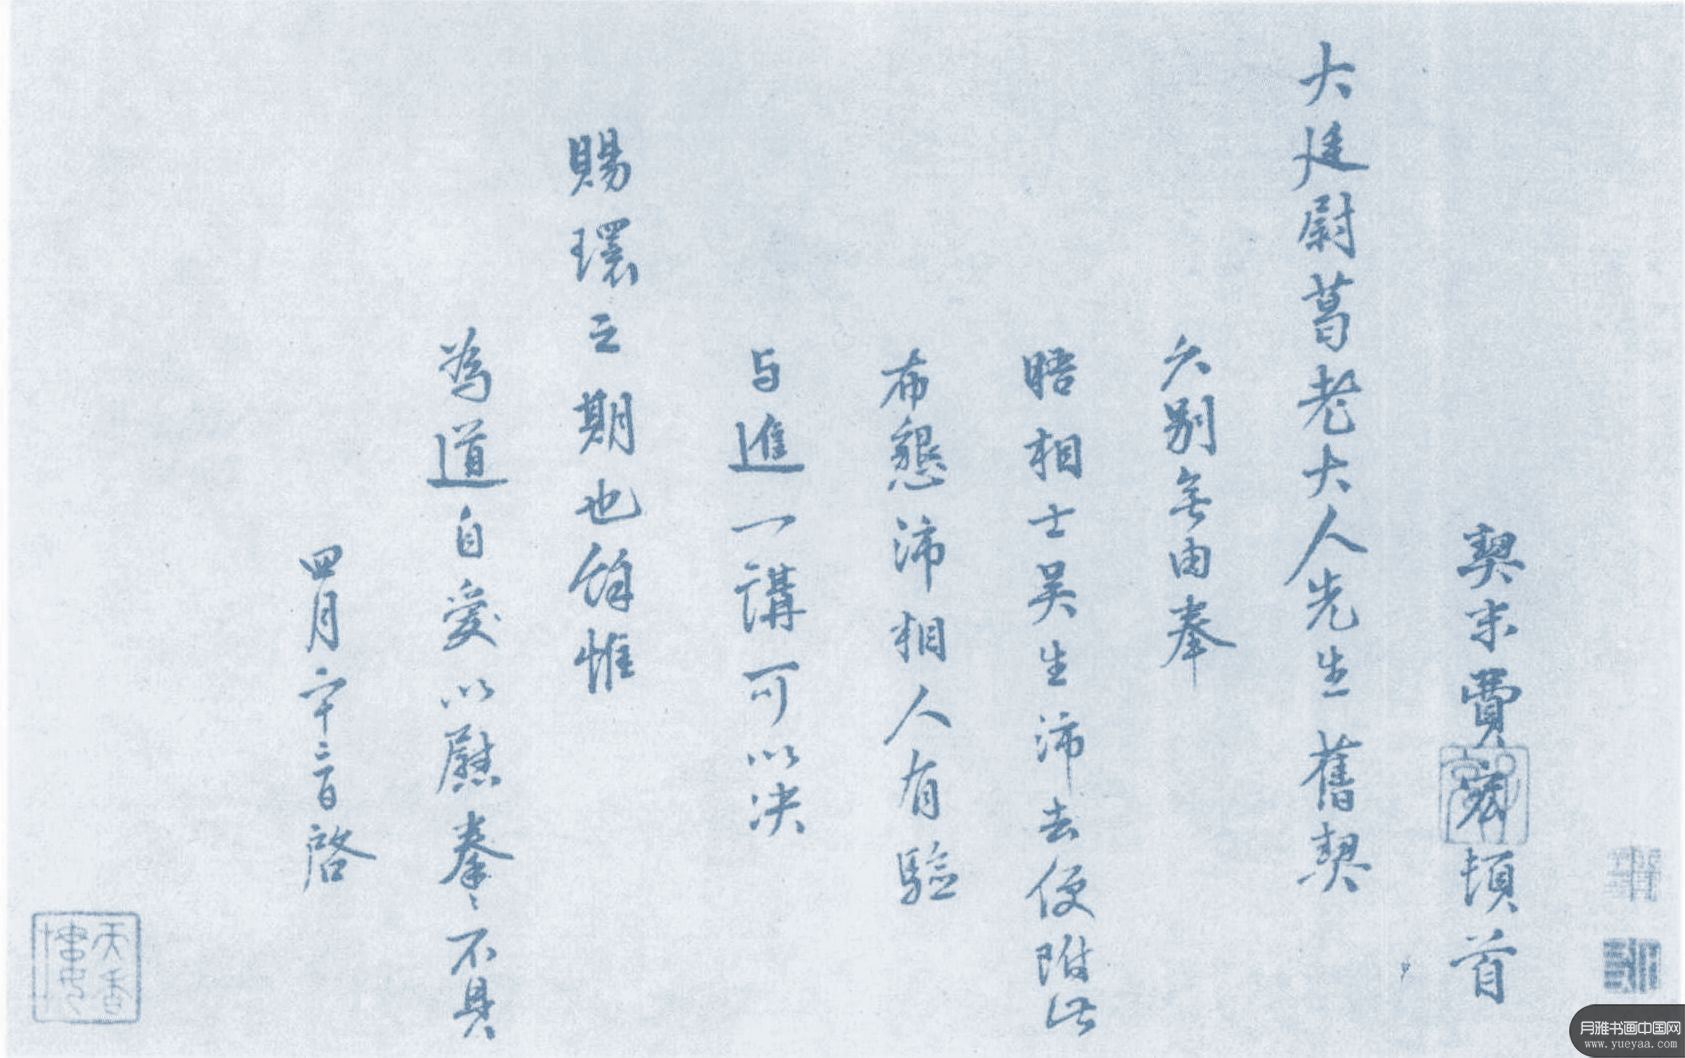 契末費宏頓首
大廷尉葛老大人先生舊契
久別無由奉
晤相士吳生沛去便附此
布懇沛相人有驗
与進一講可以決
賜環之期也餘惟
為道自愛以慰拳〻不具
四月二十二日啓
天香樓
月雅书画中国网
www.yueyaa.com